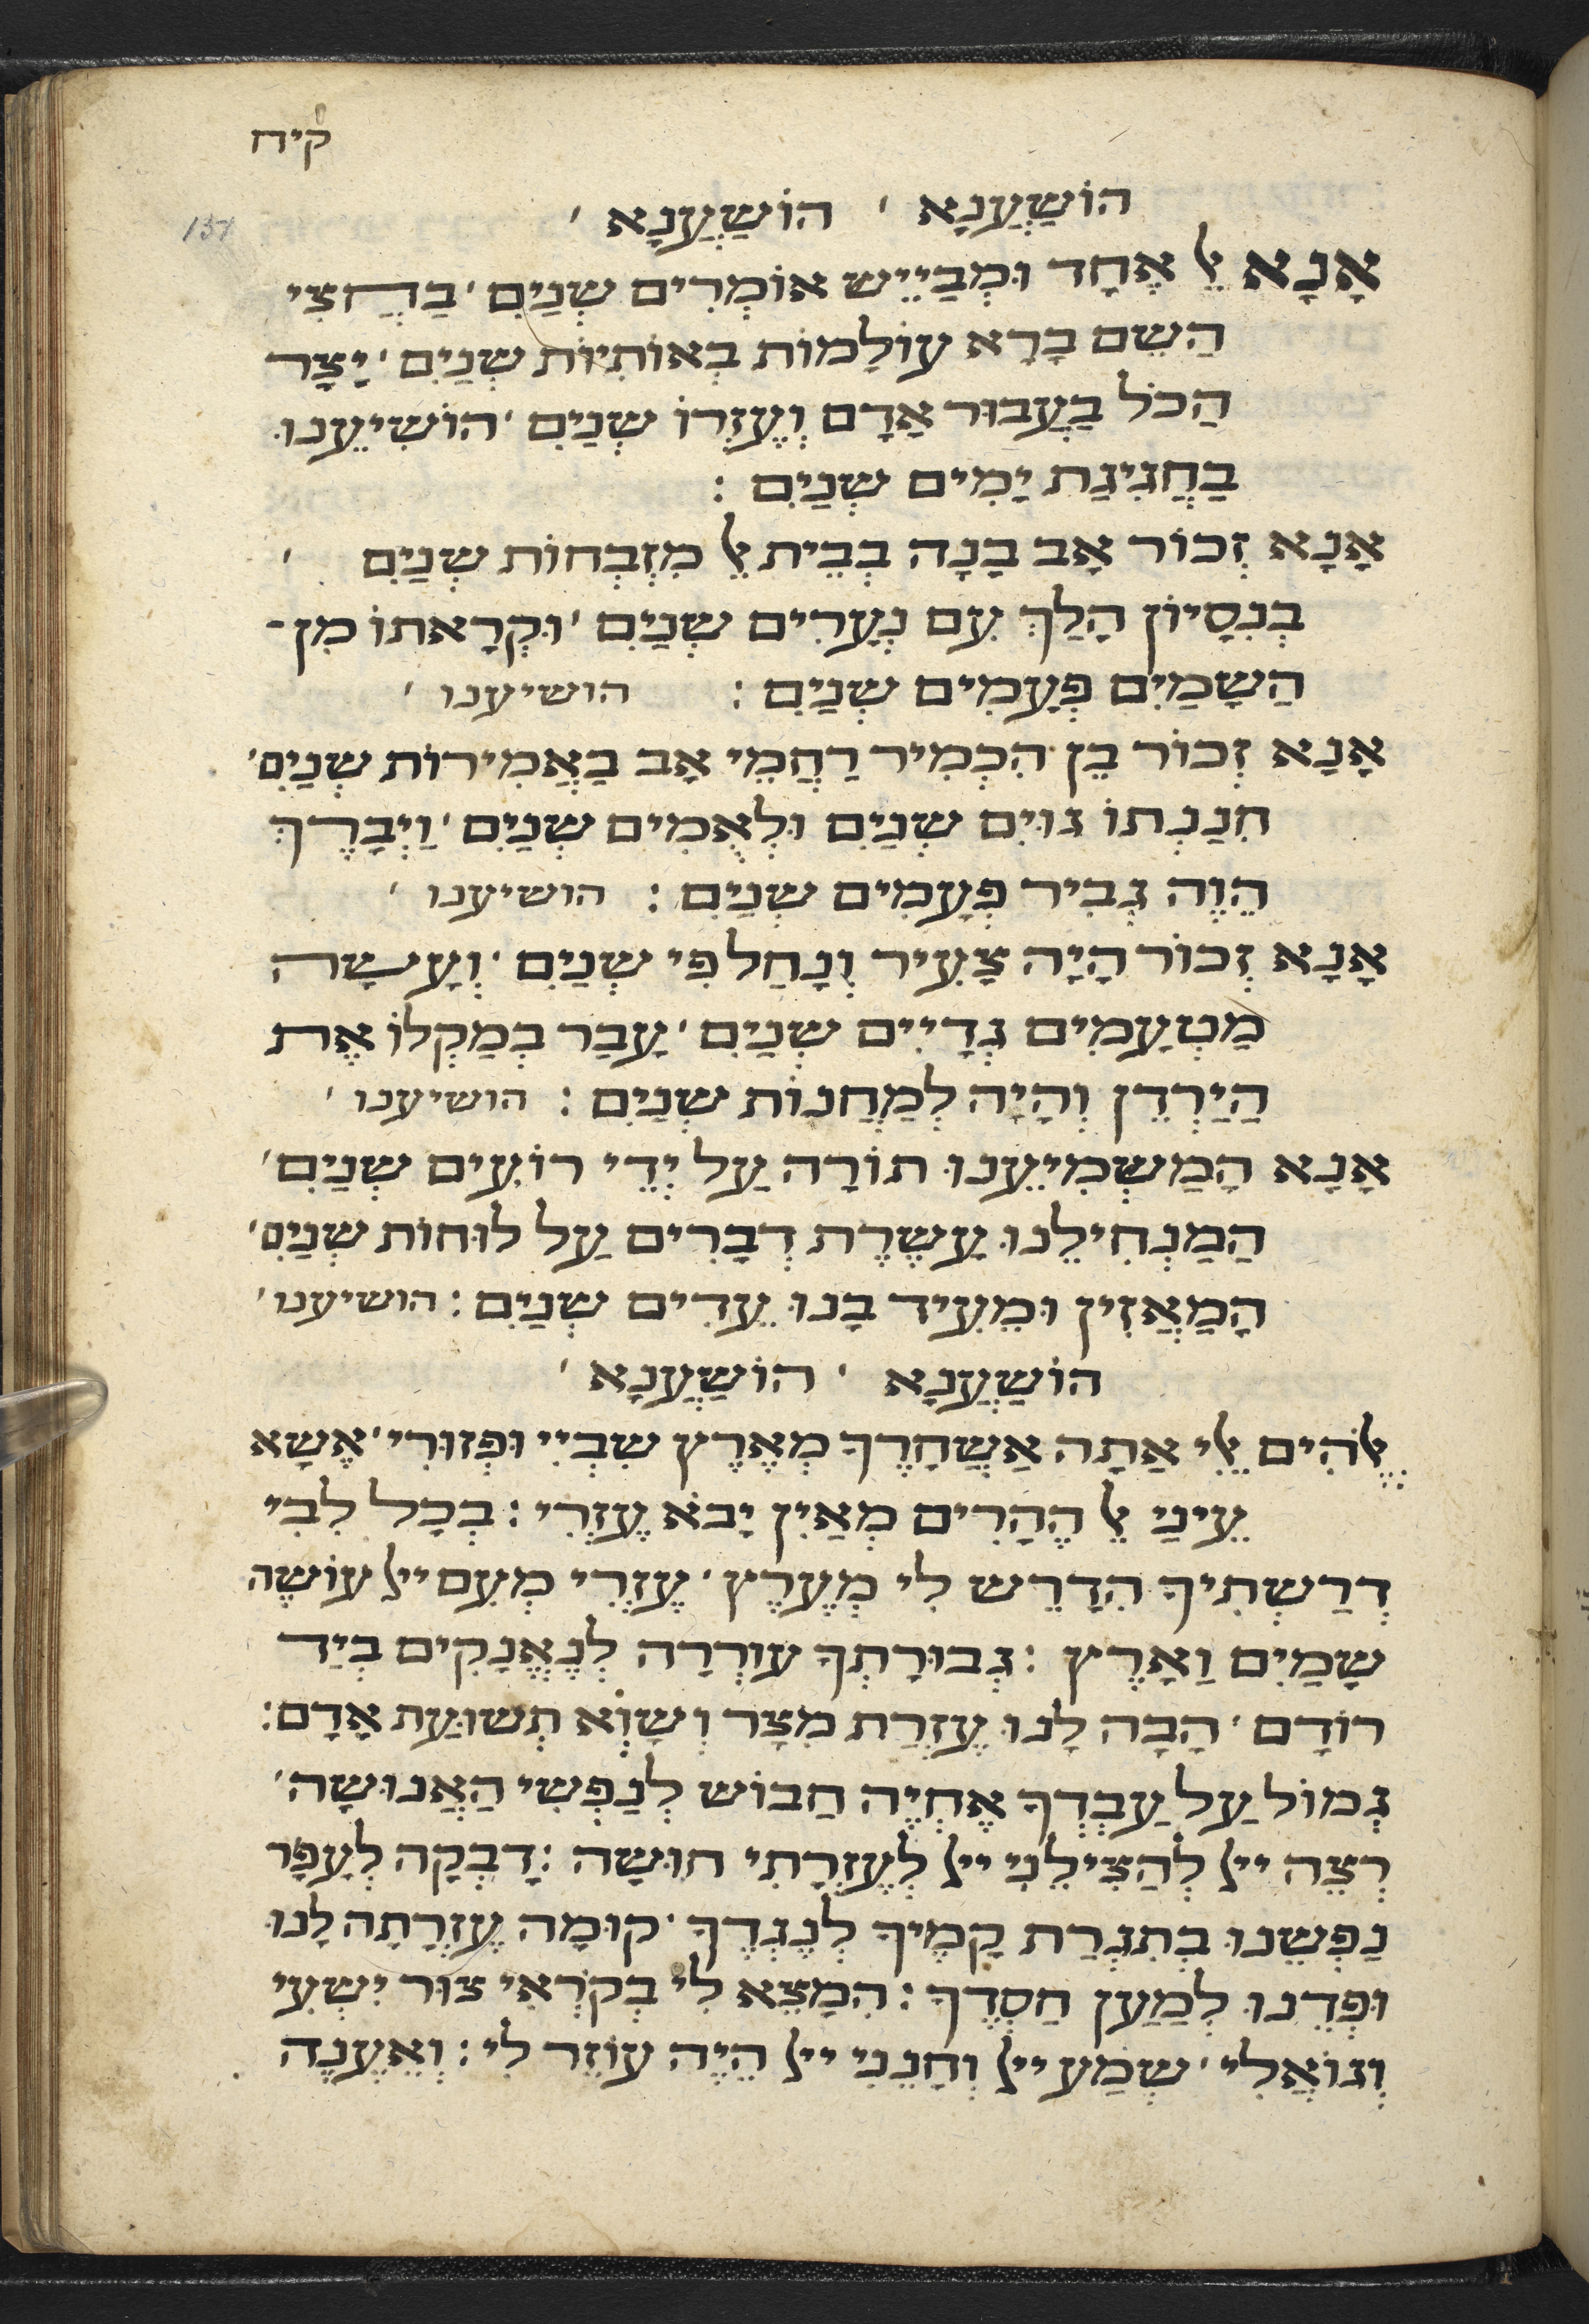 קיח
151
הוֹשַׁעֲנָא ׳ הוֹשַׁעֲנָא ׳
אָנָא אֵל אֶחָד וּמְבַיֵּישׁ אוֹמְרִים שְׁנַיִם ׳ בַּחֲצִי
הַשֵּׁם בָּרָא עוֹלָמוֹת בְּאוֹתִיּוֹת שְׁנַיִם ׳ יָצַר
הַכֹּל בַּעֲבוּר אָדָם וְעֶזְרוֹ שְׁנַיִם ׳ הוֹשִׁיעֵנוּ
בַּחֲגִיגַת יָמִים שְׁנַיִם :
אָנָא זְכוֹר אָב בָּנָה בְּבֵית אֵל מִזְבְּחוֹת שְׁנַיִם ׳
בְּנִסָּיוֹן הָלַךְ עִם נְעָרִים שְׁנַיִם ׳ וּקְרָאתוֹ מִן־
הַשָּׁמַיִם פְּעָמִים שְׁנַיִם : הושיענו ׳
אָנָא זְכוֹר בֵּן הִכְמִיר רַחֲמֵי אָב בַּאֲמִירוֹת שְׁנַיִם ׳
חִנַּנְתּוֹ גוֹיִם שְׁנַיִם וּלְאֻמִּים שְׁנַיִם ׳ וַיְבָרֶךְ
הֱוֵה גְּבִיר פְּעָמִים שְׁנַיִם : הושיענו ׳
אָנָא זְכוֹר הָיָה צָעִיר וְנָחַל פִּי שְׁנַיִם ׳ וְעָשָׂה
מַטְעַמִּים גְּדָיִים שְׁנַיִם ׳ עָבַר בְּמַקְלוֹ אֶת
הַיַּרְדֵּן וְהָיָה לְמַחֲנוֹת שְׁנַיִם : הושיענו ׳
אָנָא הַמַּשְׁמִיעֵנוּ תּוֹרָה עַל יְדֵי רוֹעִים שְׁנַיִם ׳
הַמַּנְחִילֵנוּ עֲשֶׂרֶת דְּבָרִים עַל לוּחוֹת שְׁנַיִם ׳
הַמַּאֲזִין וּמֵעִיד בָּנוּ עֵדִים שְׁנַיִם : הושיענו ׳
הוֹשַׁעֲנָא ׳ הוֹשַׁעֲנָא ׳
אֱלֹהִים אֵלִי אַתָּה אֲשַׁחֲרֶךָּ מֵאֶרֶץ שִׁבְיִי וּפְזוּרִי ׳ אֶשָּׂא
עֵינַי אֶל הֶהָרִים מֵאַיִן יָבֹא עֶזְרִי : בְּכָל לִבִּי
דְרַשְׁתִּיךָ הִדָּרֵשׁ לִי מְעֶרֶץ ׳ עֶזְרִי מֵעִם ייל עוֹשֶׂה
שָׁמַיִם וָאָרֶץ : גְּבוּרָתְךָ עוֹרְרָה לְנֶאֱנָקִים בְּיַד
רוֹדָם ׳ הָבָה לָּנוּ עֶזְרַת מִצָּר וְשָׁוְא תְּשׁוּעַת אָדָם :
גְּמוֹל עַל עַבְדְּךָ אֶחְיֶה חֲבוֹשׁ לְנַפְשִׁי הָאֲנוּשָׁה ׳
רְצֵה ייל לְהַצִּילֵנִי ייל לְעֶזְרָתִי חוּשָׁה : דָּבְקָה לְעָפָר
נַפְשֵׁנוּ בְּתִגְרַת קָמֶיךָ לְנֶגְדֶּךָ ׳ קוּמָה עֶזְרָתָה לָּנוּ
וּפְדֵנוּ לְמַעַן חַסְדֶּךָ : הִמָּצֵא לִי בְּקָרְאִי צוּר יִשְׁעִי
וְגוֹאֲלִי ׳ שְׁמַע ייל וְחָנֵּנִי ייל הֱיֵה עוֹזֵר לִי : וְאֶעֱנֶה